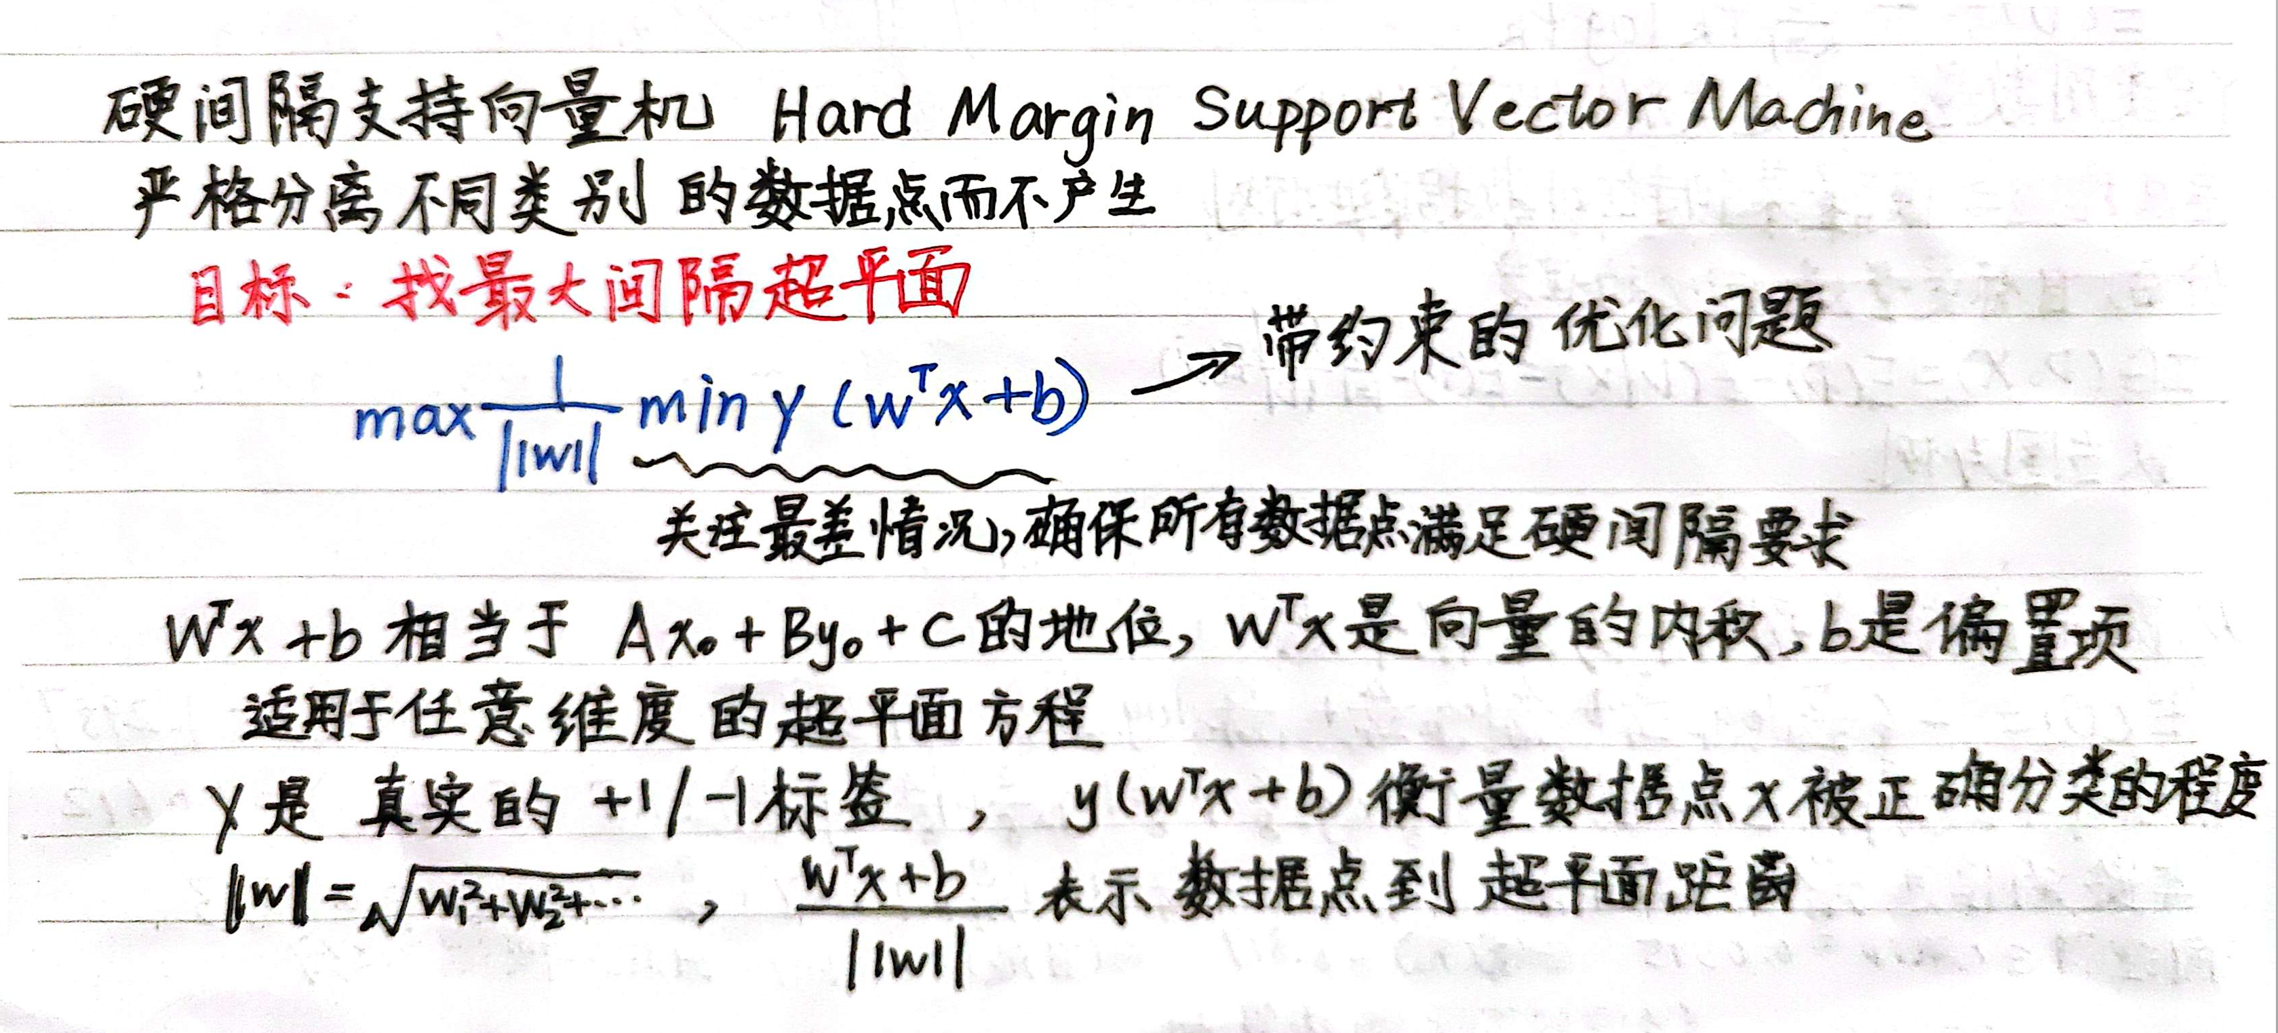 硬间隔支持向量机 Hard Margin Support Vector Machine
严格分离不同类别的数据点而不产生
目标：找最大间隔超平面
max 1/||w|| min y (wᵀx+b) → 带约束的优化问题
关注最差情况,确保所有数据点满足硬间隔要求
wᵀx+b 相当于 Ax₀+By₀+C的地位, wᵀx是向量的内积,b是偏置项
适用于任意维度的超平面方程
y是真实的+1/-1标签, y(wᵀx+b)衡量数据点x被正确分类的程度
||w||=√w₁²+w₂²+···, wᵀx+b/||w|| 表示数据点到超平面距离